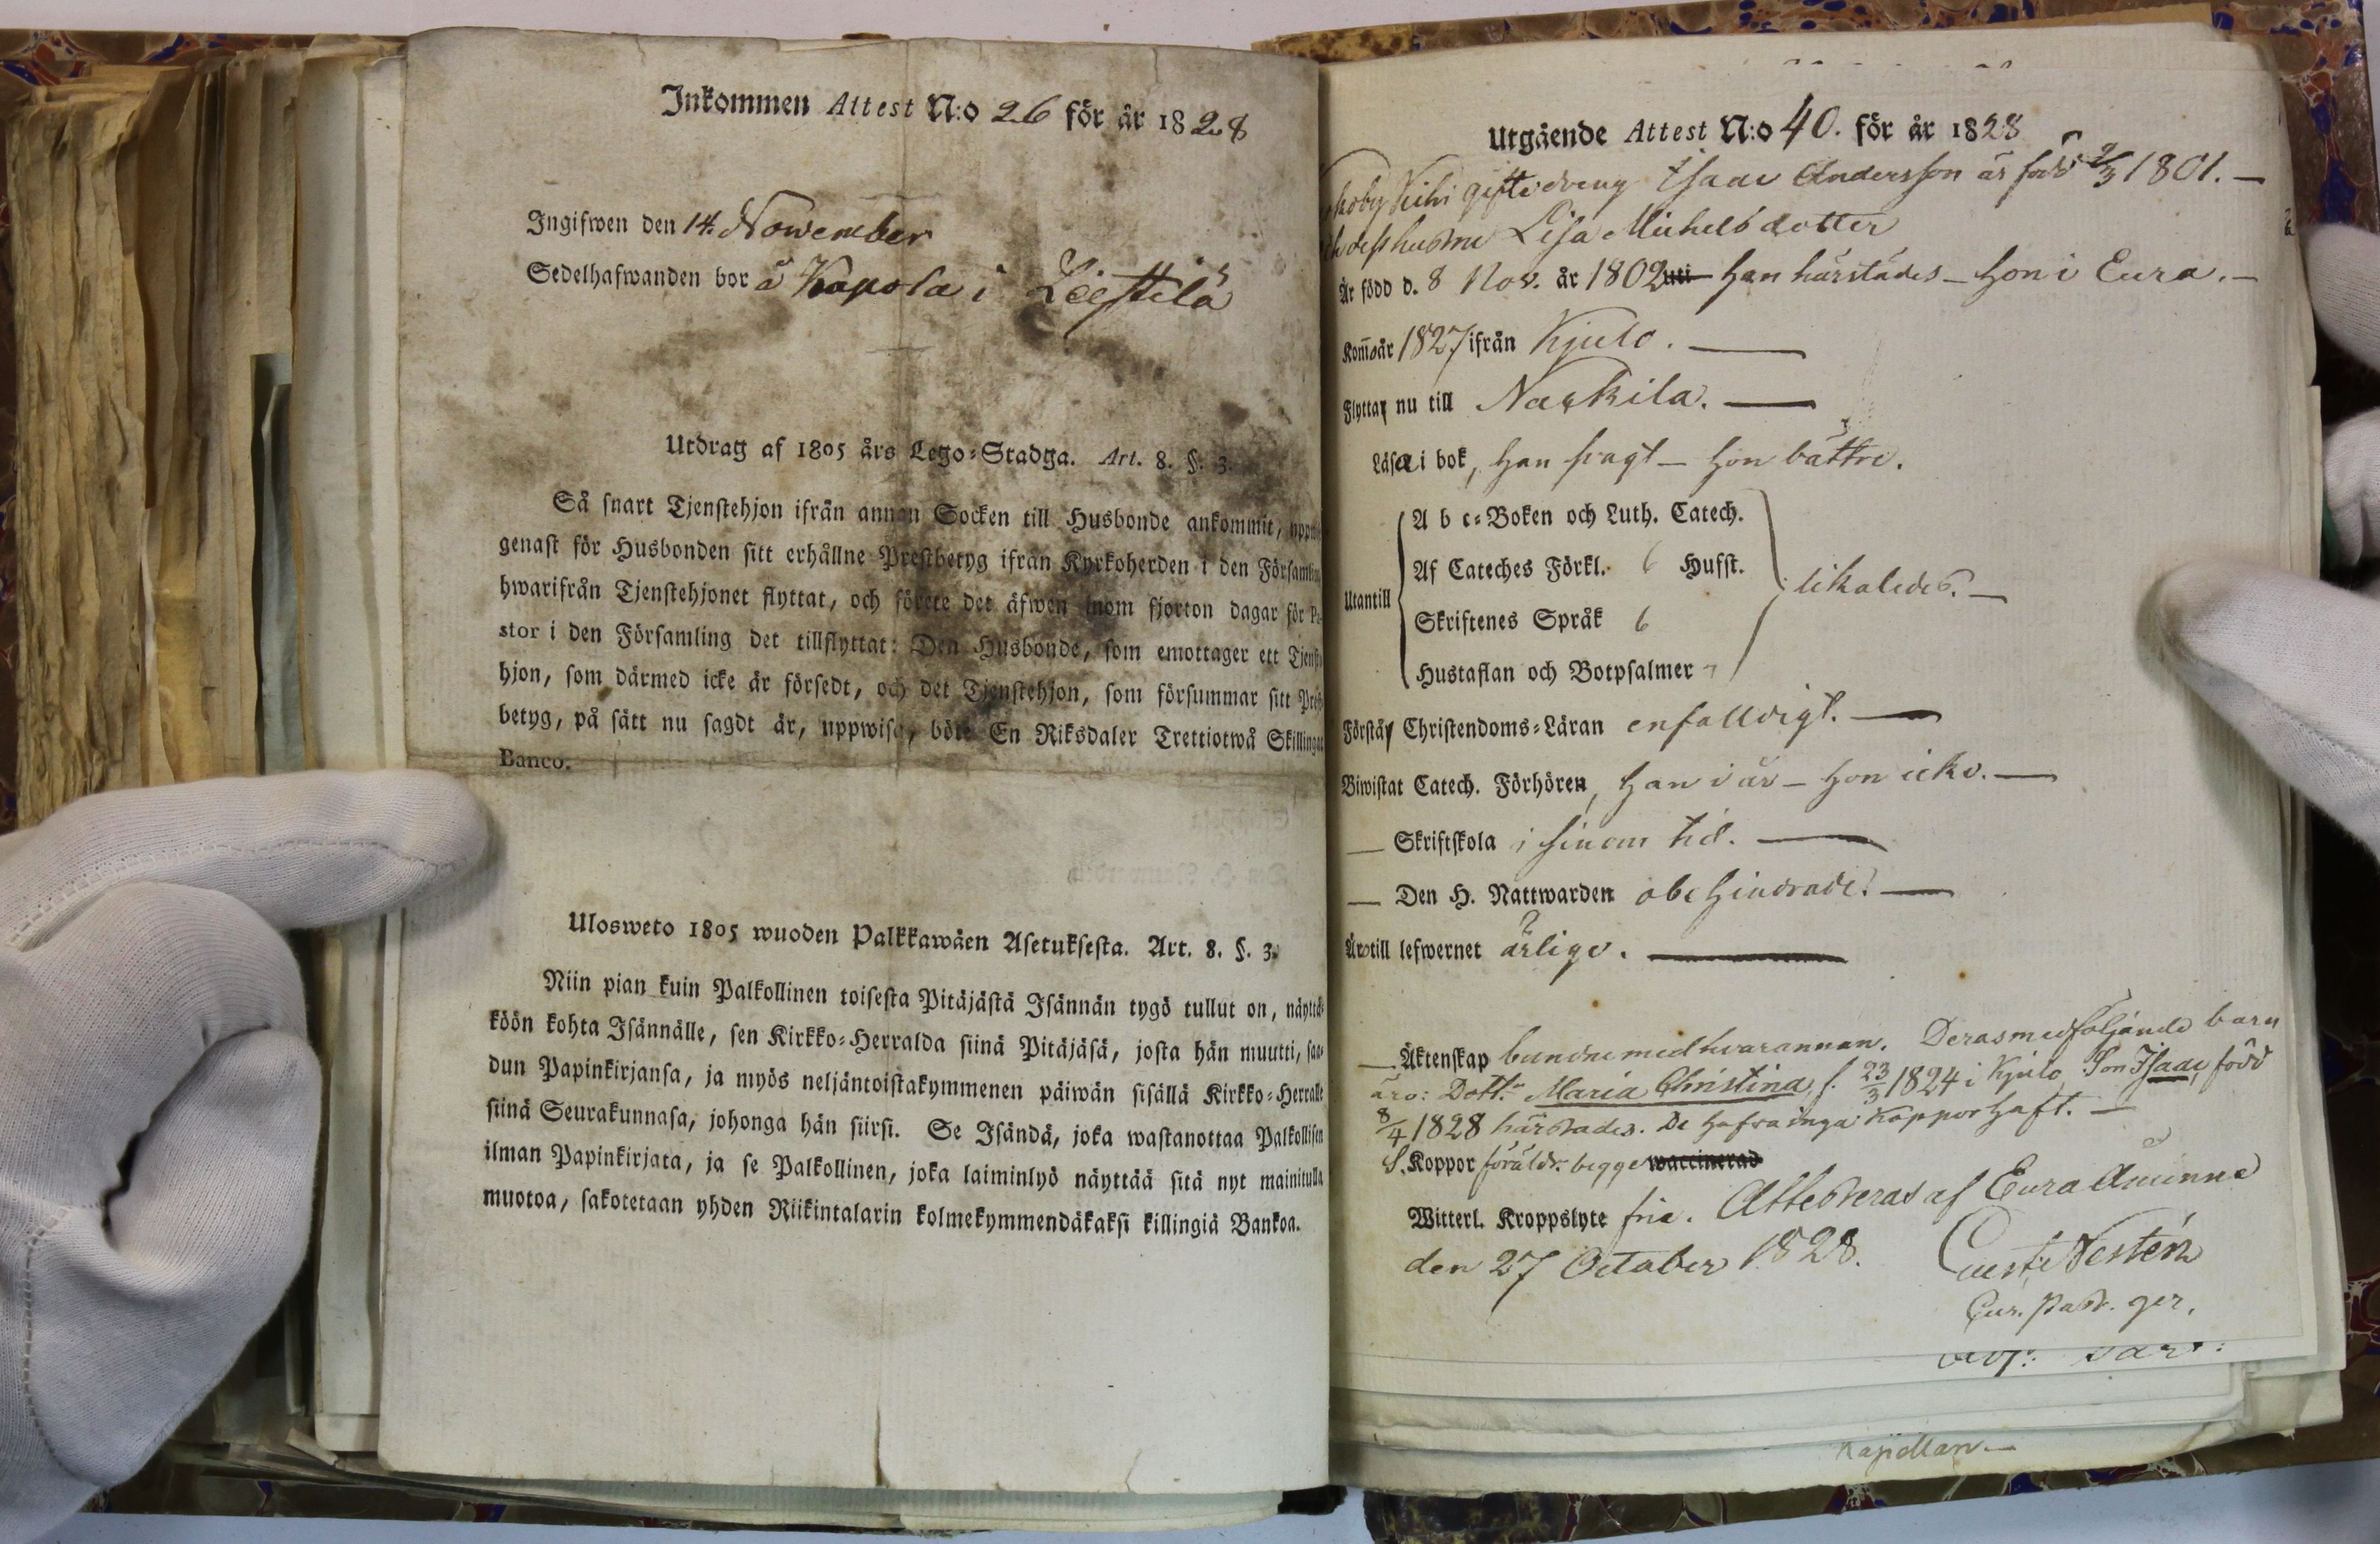 Inkommen Attest N:o 26 för år 1828
Ingifwen den 14. November
Sedelhafwanden bor å Kapola i Leistilä
Utdrag af 1805 års Lego-Stadga. Art. 8. §. 3.
Så snart Tjenstehjon ifrån annan Socken till Husbonde ankommit,
genast för Husbonden sitt erhållne Prestbetyg ifrån Kyrkoherden i den
hwarifrån Tjenstehjonet flyttat, och förete det äfwen inom fjorton dagar för
stor i den Församling det tillflyttat: Den Husbonde, som emottager ett
hjon, som därmed icke är försedt, och det Tjenstehjon, som försummar sitt
betyg, på sätt nu sagdt är, uppwisa, böte En Riksdaler Trettiotwå
Banco.
Ulosweto 1805 wuoden Palkkawäen Asetuksesta. Art. 8. §. 3.
Niin pian kuin Palkollinen toisesta Pitäjästä Isännän tygö tullut on, näyttä-
köön kohta Isännälle, sen Kirkko-Herralda siinä Pitäjäsä, josta hän muutti, saa-
dun Papinkirjansa, ja myös neljäntoistakymmenen päiwän sisällä Kirkko-Herralle
siinä Seurakunnasa, johonga hän siirsi. Se Isändä, joka wastanottaa Palkollisen
ilman Papinkirjata, ja se Palkollinen, joka laiminlyö näyttää sitä nyt mainitulla
muotoa, sakotetaan yhden Riikintalarin kolmekymmendäkaksi killingiä Bankoa.
Utgående Attest N:o 40. för år 1828
gifte dreng Isaac Andersson är född 2/3 1801.
hustru Lisa Michelsdotter
Är född d. 8 Nov. år 1802 uti han härstädes - hon i Eura.
Kom år 1827 ifrån Kjulo.
Flytta nu till Nackila.
Läsa i bok, han svagt - hon bättre.
A b c-Boken och Luth. Catech.
Af Cateches Förkl. 6 Husst.
Utantill likaledes.
Skriftenes Språk 6
Hustaflan och Botpsalmer
Förstå Christendoms-Läran enfalldigt.
Biwistat Catech. Förhören, han i år - hon icke.
— Skriftskola i sinom tid.
— Den H. Nattwarden obehindrade.
Äro till lefwernet ärlige.
— Äktenskap bundne med hvarannan. Deras medföljande barn
äro: Dottr. Maria Christina, f. 23/3 1824 i Kjulo, Son Isaac, född
8/4 1828 härstädes. De hafva inga koppor haft.
S. Koppor föräldr. begge waccinerad
Witterl. Kroppslyte fria. Attesteras af Eura Åminne
den 27 October 1828. Nestén
Past. ger.
Kapellan.